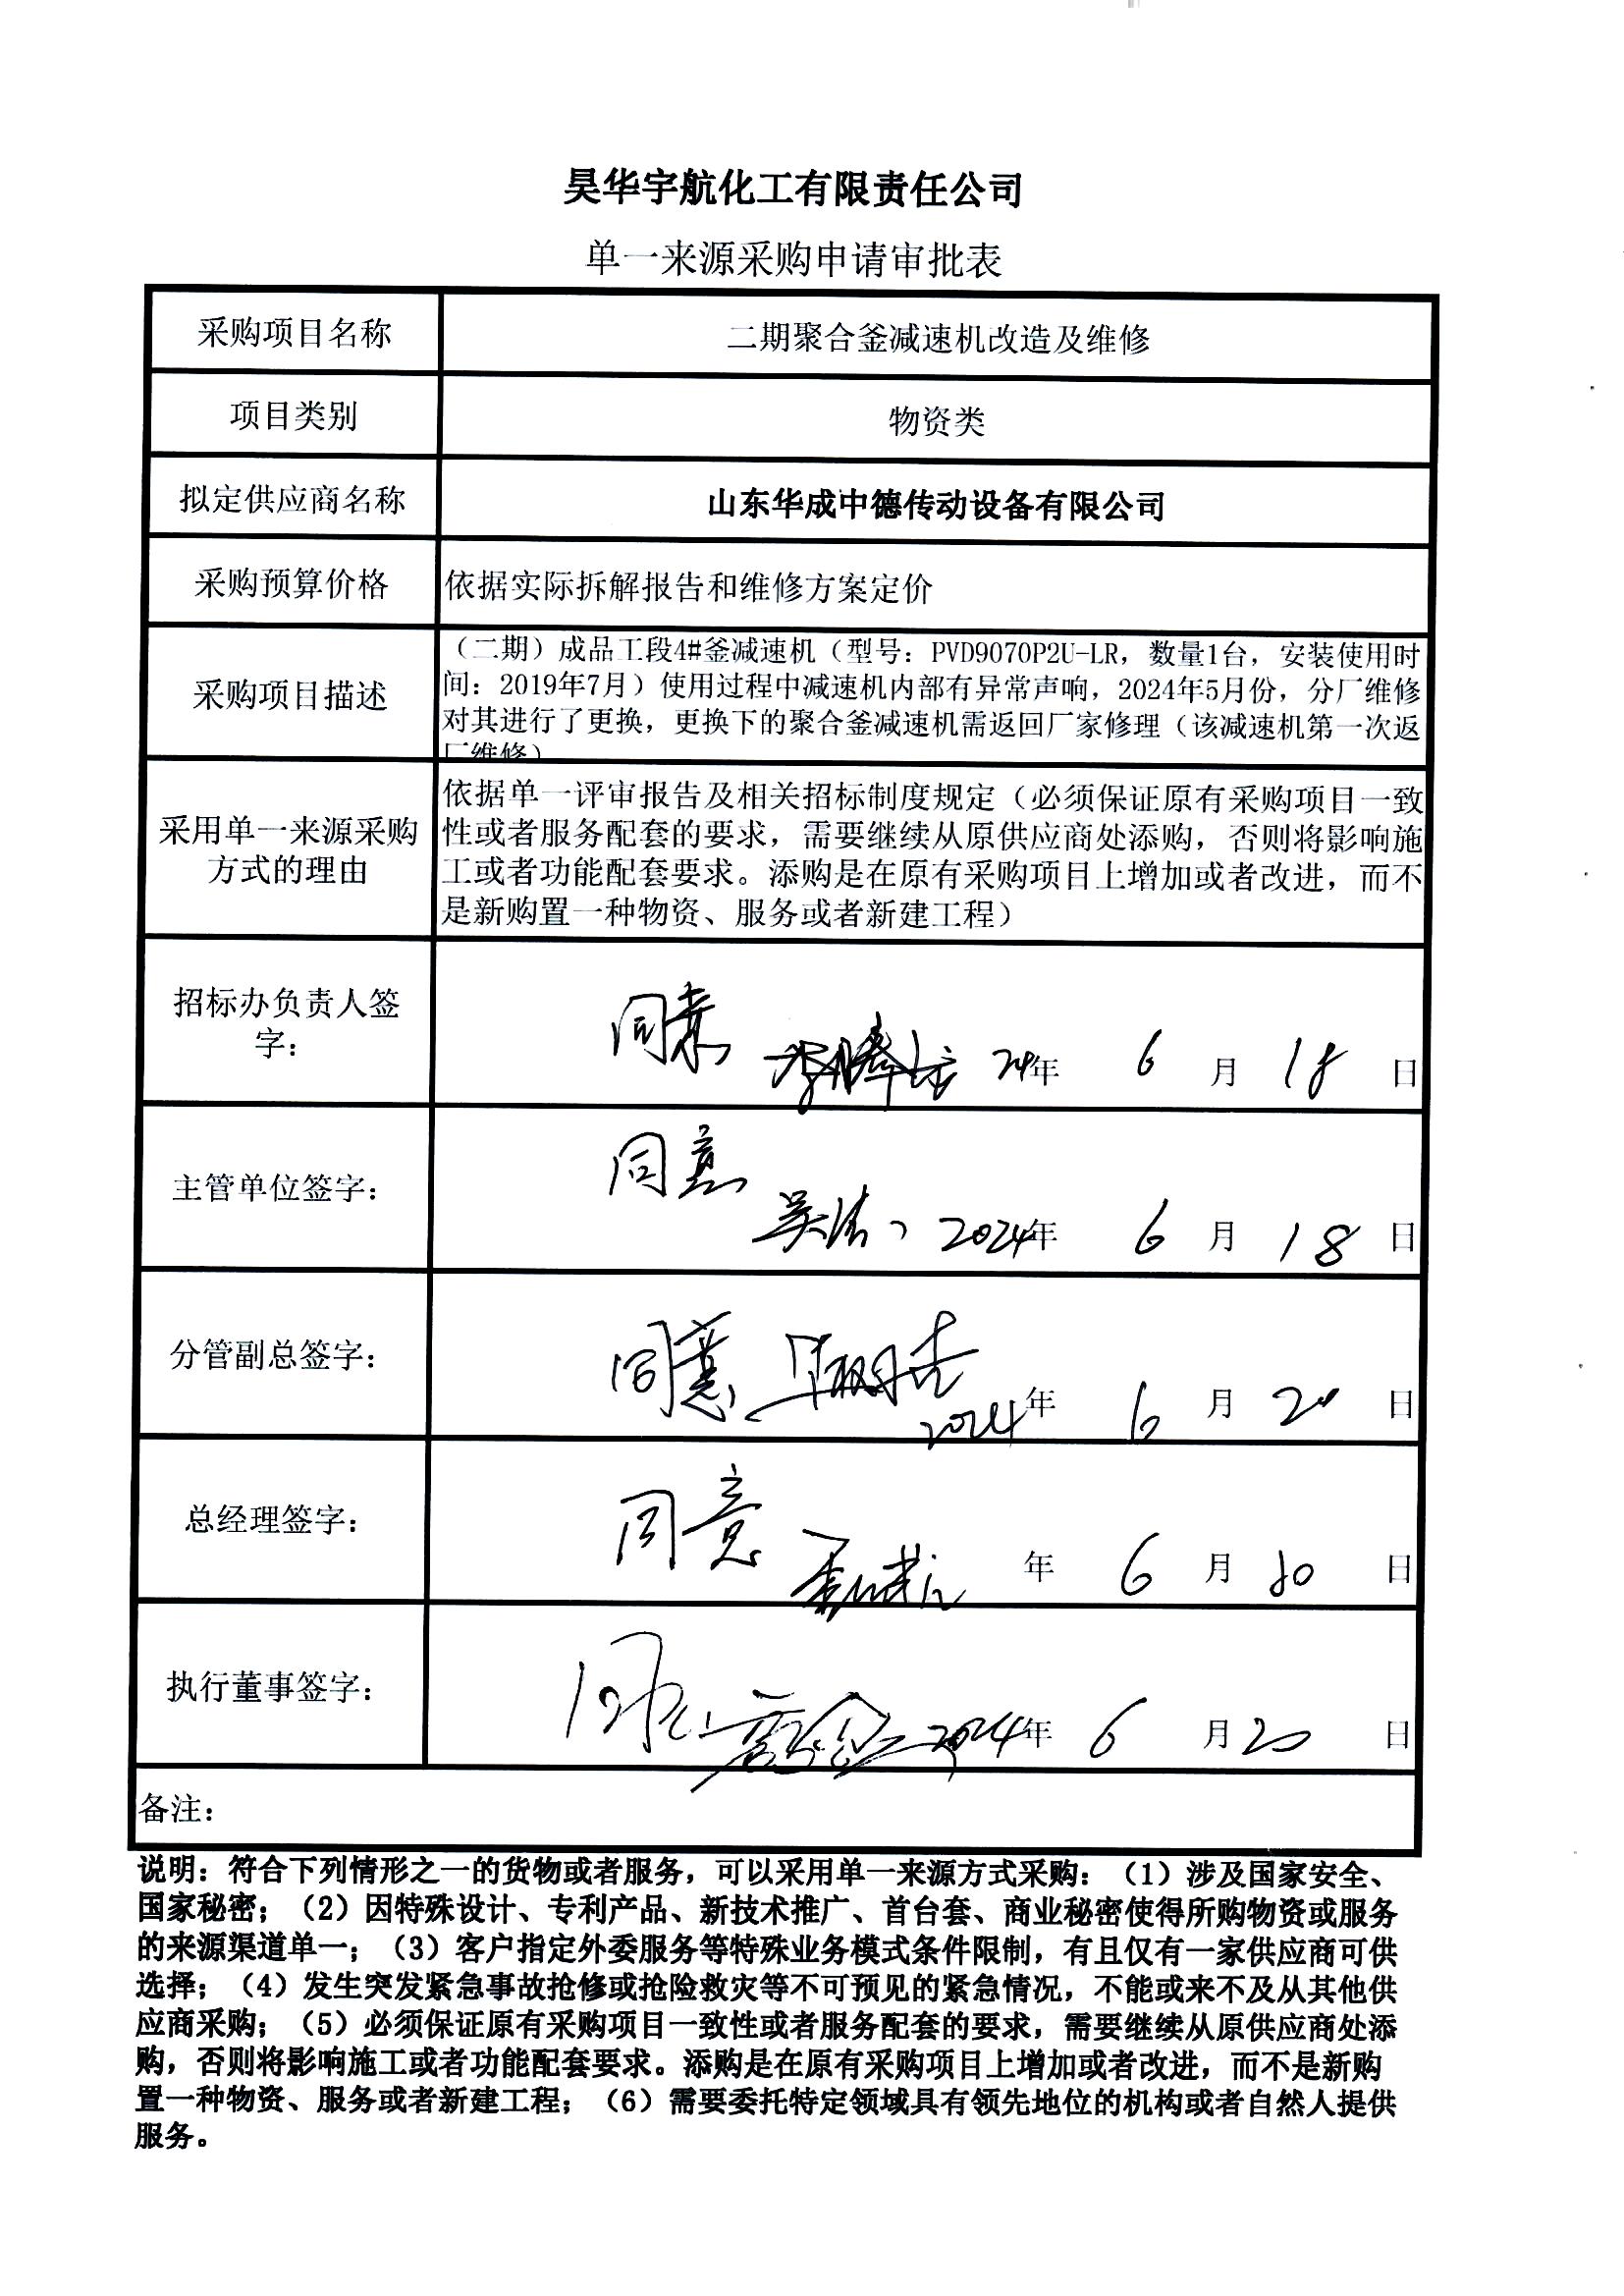 昊华宇航化工有限责任公司
单一来源采购申请审批表
采购项目名称
二期聚合釜减速机改造及维修
项目类别
物资类
拟定供应商名称
山东华成中德传动设备有限公司
采购预算价格
依据实际拆解报告和维修方案定价
采购项目描述
（二期）成品工段4#釜减速机（型号：PVD9070P2U-LR，数量1台，安装使用时
间：2019年7月）使用过程中减速机内部有异常声响，2024年5月份，分厂维修
对其进行了更换，更换下的聚合釜减速机需返回厂家修理（该减速机第一次返
厂维修）
采用单一来源采购
方式的理由
依据单一评审报告及相关招标制度规定（必须保证原有采购项目一致
性或者服务配套的要求，需要继续从原供应商处添购，否则将影响施
工或者功能配套要求。添购是在原有采购项目上增加或者改进，而不
是新购置一种物资、服务或者新建工程）
招标办负责人签
字：
同意
24年 6 月 18 日
主管单位签字：
同意
2024年 6 月 18 日
分管副总签字：
同意
2024年 6 月 20 日
总经理签字：
同意
年 6 月 20 日
执行董事签字：
同意
2024年 6 月 20 日
备注：
说明：符合下列情形之一的货物或者服务，可以采用单一来源方式采购：（1）涉及国家安全、
国家秘密；（2）因特殊设计、专利产品、新技术推广、首台套、商业秘密使得所购物资或服务
的来源渠道单一；（3）客户指定外委服务等特殊业务模式条件限制，有且仅有一家供应商可供
选择；（4）发生突发紧急事故抢修或抢险救灾等不可预见的紧急情况，不能或来不及从其他供
应商采购；（5）必须保证原有采购项目一致性或者服务配套的要求，需要继续从原供应商处添
购，否则将影响施工或者功能配套要求。添购是在原有采购项目上增加或者改进，而不是新购
置一种物资、服务或者新建工程；（6）需要委托特定领域具有领先地位的机构或者自然人提供
服务。